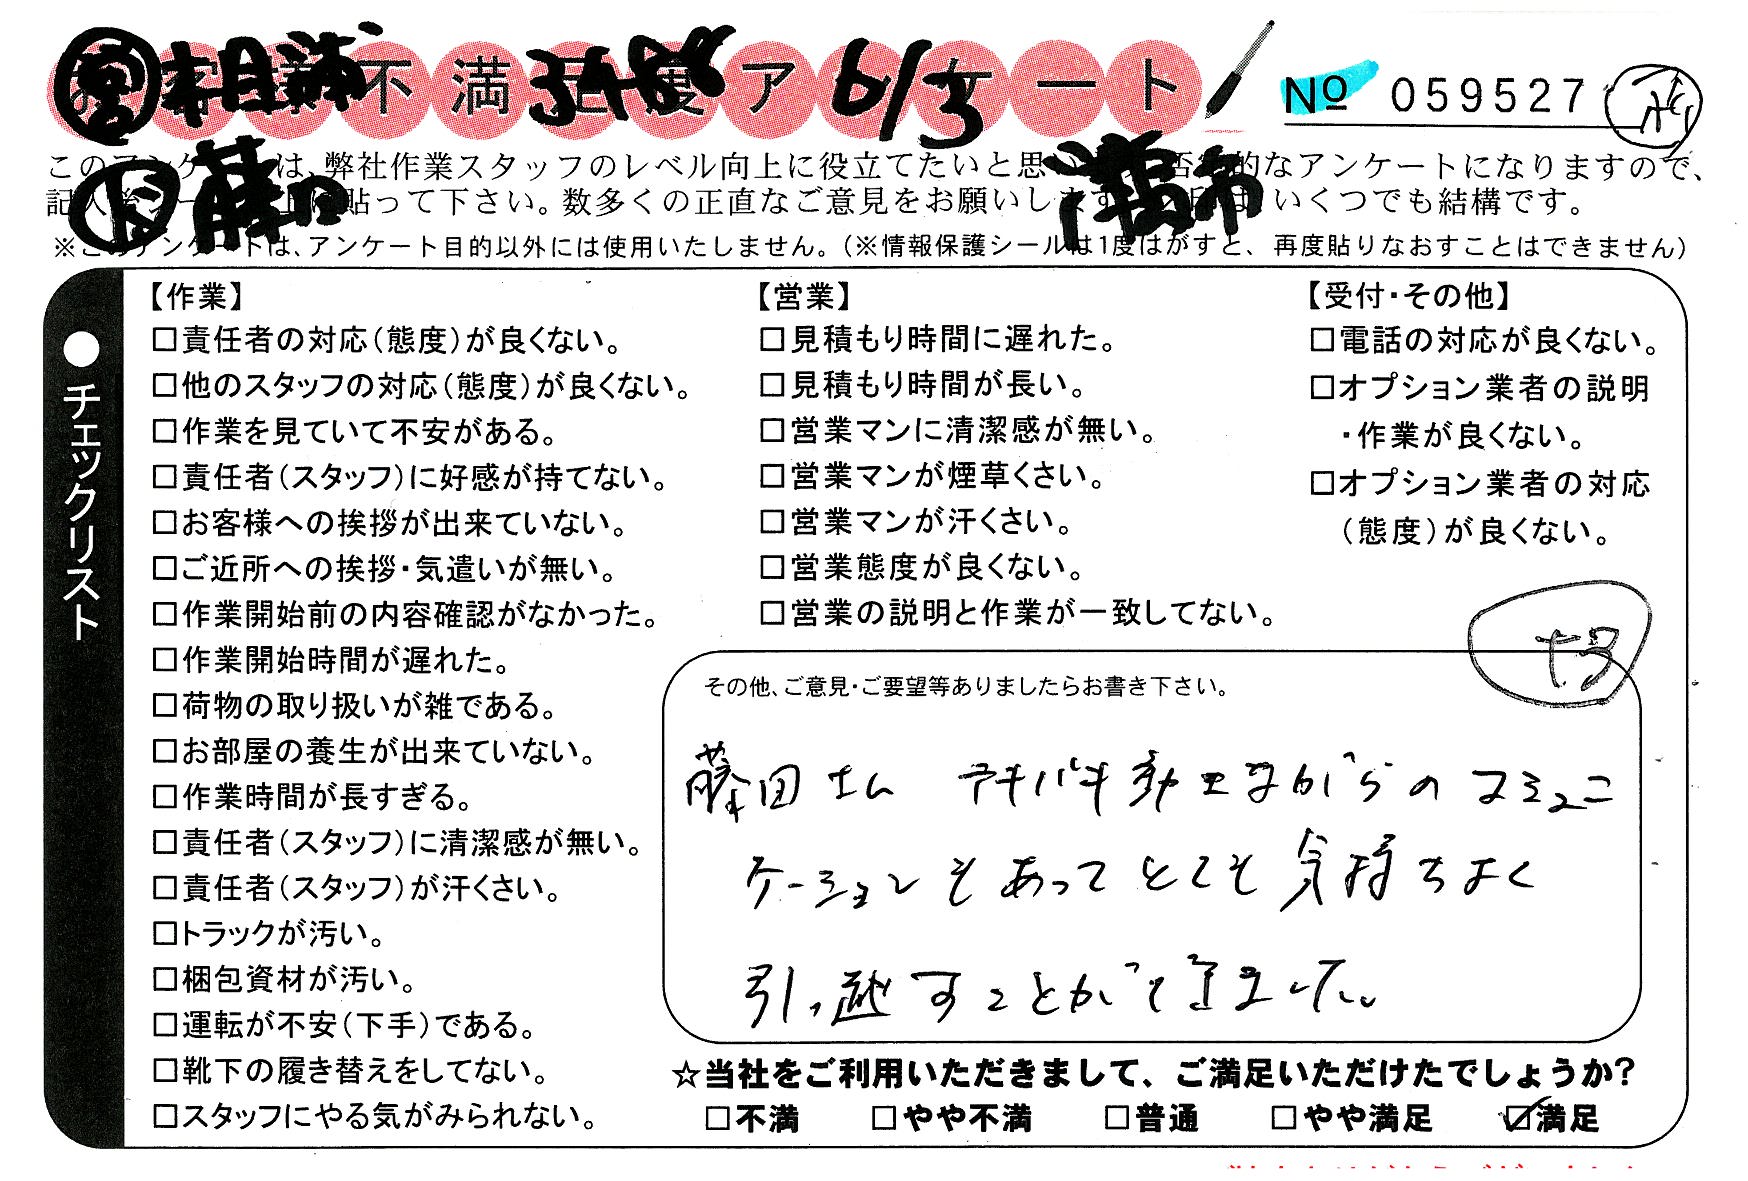 お客様不満足度アンケート
営 相模 3486 6/3
No 059527
このアンケートは、弊社作業スタッフのレベル向上に役立てたいと思い
的なアンケートになりますので、
下 藤田
記入後シールを上に貼って下さい。数多くの正直なご意見をお願いします
いくつでも結構です。
※このアンケートは、アンケート目的以外には使用いたしません。(※情報保護シールは1度はがすと、再度貼りなおすことはできません)
●チェックリスト
【作業】
□責任者の対応(態度)が良くない。
□他のスタッフの対応(態度)が良くない。
□作業を見ていて不安がある。
□責任者(スタッフ)に好感が持てない。
□お客様への挨拶が出来ていない。
□ご近所への挨拶・気遣いが無い。
□作業開始前の内容確認がなかった。
□作業開始時間が遅れた。
□荷物の取り扱いが雑である。
□お部屋の養生が出来ていない。
□作業時間が長すぎる。
□責任者(スタッフ)に清潔感が無い。
□責任者(スタッフ)が汗くさい。
□トラックが汚い。
□梱包資材が汚い。
□運転が不安(下手)である。
□靴下の履き替えをしてない。
□スタッフにやる気がみられない。
【営業】
□見積もり時間に遅れた。
□見積もり時間が長い。
□営業マンに清潔感が無い。
□営業マンが煙草くさい。
□営業マンが汗くさい。
□営業態度が良くない。
□営業の説明と作業が一致してない。
【受付・その他】
□電話の対応が良くない。
□オプション業者の説明
・作業が良くない。
□オプション業者の対応
(態度)が良くない。
+3
その他、ご意見・ご要望等ありましたらお書き下さい。
藤田さん テキパキ動きながらのコミュニ
ケーションもあってとても気持ちよく
引っ越すことができました。
☆当社をご利用いただきまして、ご満足いただけたでしょうか?
□不満 □やや不満 □普通 □やや満足 ☑満足